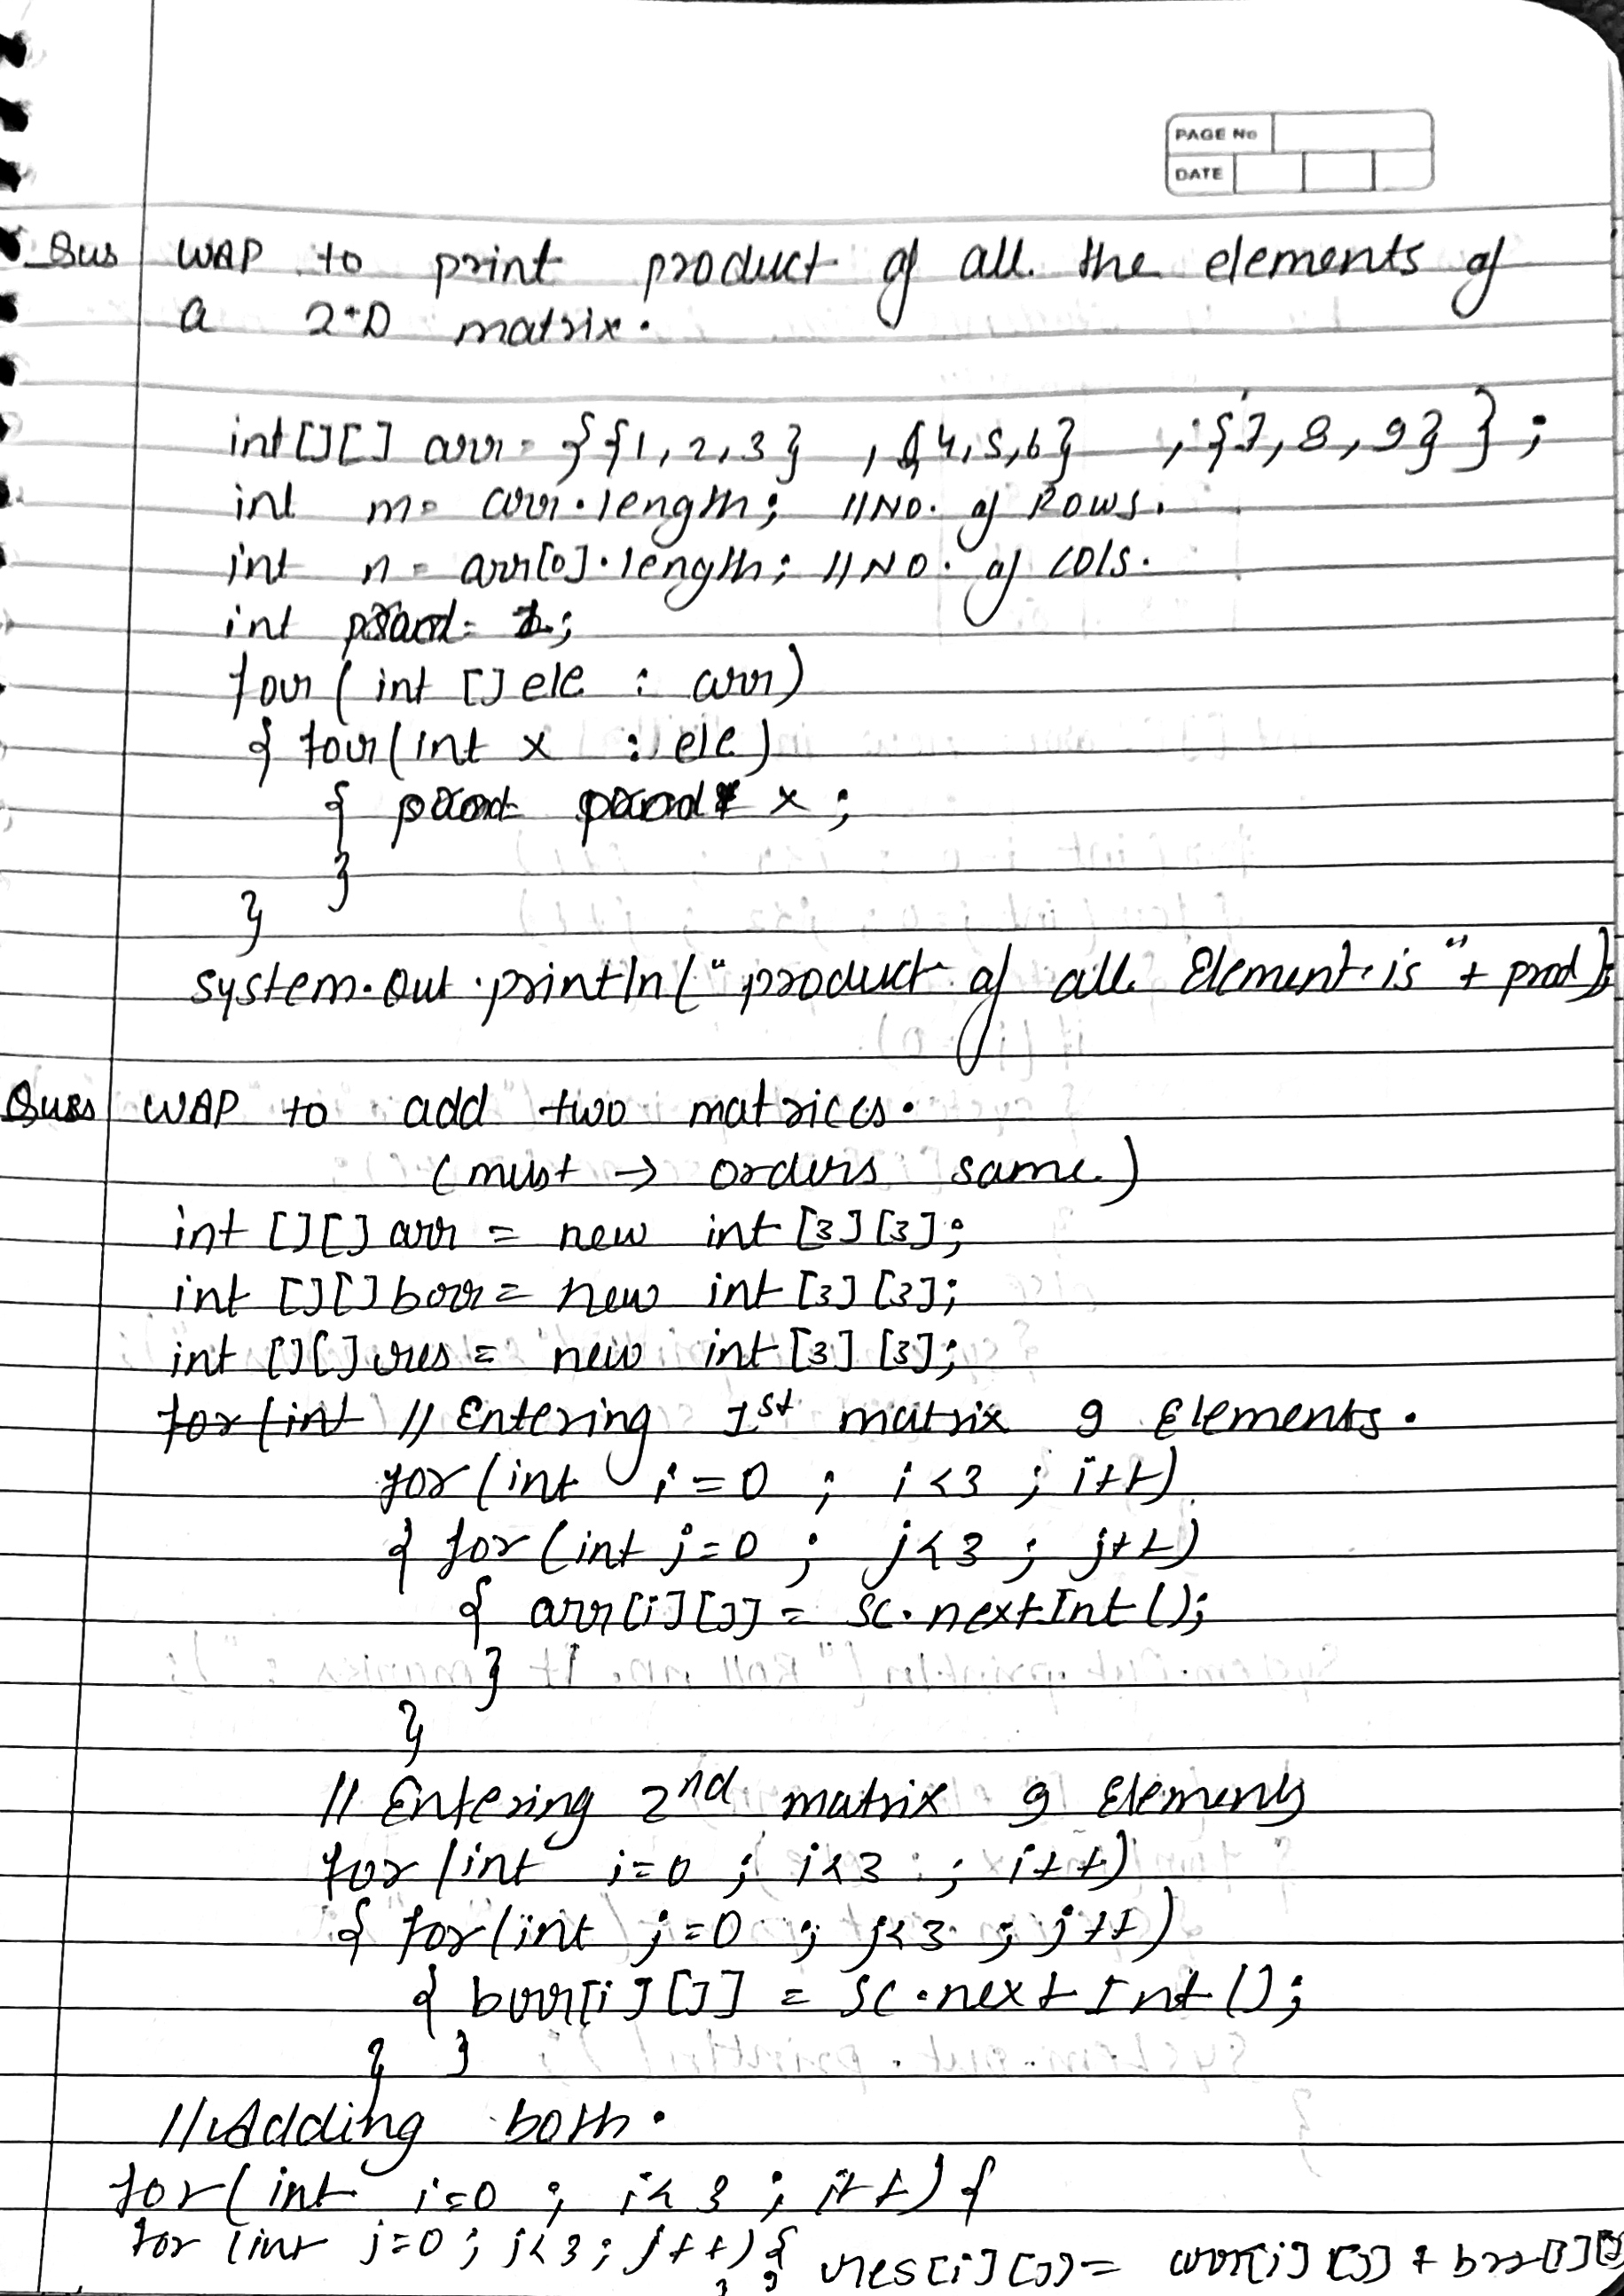 PAGE No
DATE
Ques WAP to print product of all the elements of
a 2-D matrix.
int[][] arr = {{1,2,3} ,{4,5,6} ,{7,8,9} };
int m = arr.length; //NO. of Rows.
int n = arr[0].length; //NO. of cols.
int prod = 1;
for( int [] ele : arr)
{ for(int x : ele)
{ prod = prod * x ;
}
}
system.out.println("product of all Element is" + prod);
Ques WAP to add two matrices.
(must → orders same)
int [][] arr = new int [3][3];
int [][] brr = new int [3][3];
int [][] res = new int [3][3];
for(int // Entering 1st matrix 9 Elements.
for(int i=0 ; i<3 ; i++)
{ for(int j=0 ; j<3 ; j++)
{ arr[i][j] = sc.nextInt();
}
}
// Entering 2nd matrix 9 Elements
for(int i=0 ; i<3 ; i++)
{ for(int j=0 ; j<3 ; j++)
{ brr[i][j] = sc.nextInt();
} }
//Adding both.
for(int i=0 ; i<3 ; i++) {
for (int j=0 ; j<3 ; j++) { res[i][j] = arr[i][j] + brr[i][j]
} }